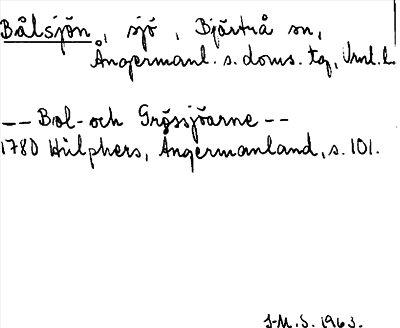 Bålsjön, sjö, Bjärtrå sn,
Ångermanl. s. doms. tg, Vnrl. l.
-- Bol- och Grössjöarne --
1780 Hülphers, Ångermanland, s. 101.
J-M. S. 1963.